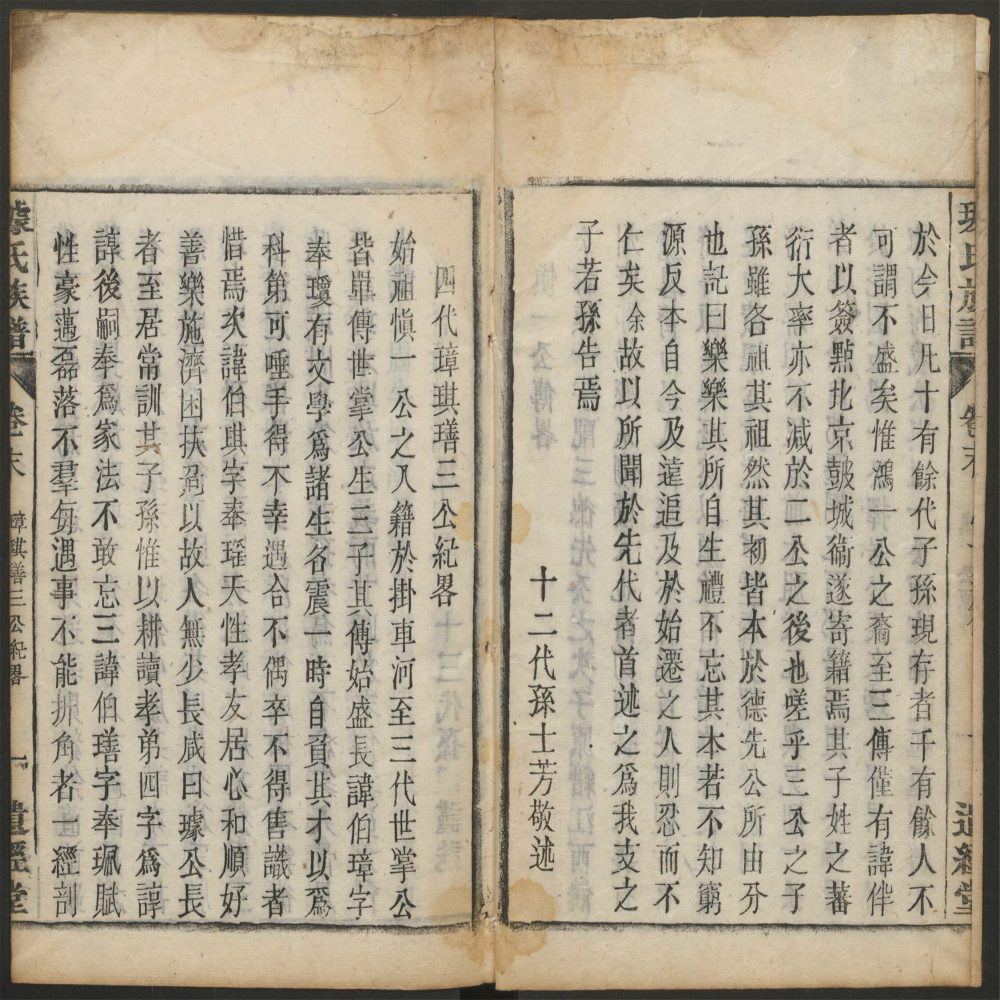 於今日凡十有餘代子孫現存者千有餘人不
可謂不盛矣惟鴻一公之裔至三傳僅有諱伴
者以簽點北京皷城衛遂寄籍焉其子姓之蕃
衍大率亦不減於二公之後也嗟乎三公之子
孫雖各祖其祖然其初皆本於德先公所由分
也記曰樂樂其所自生禮不忘其本若不知窮
源反本自今及遠追及於始遷之人則忍而不
仁矣余故以所聞於先代者首述之爲我支之
子若孫告焉
十二代孫士芳敬述
四代璋琪璓三公紀畧
始祖愼一公之入籍於掛車河至三代世掌公
皆單傳世掌公生三子其傳始盛長諱伯璋字
奉瓊有文學爲諸生名震一時自負其才以爲
科第可唾手得不幸遇合不偶卒不得售識者
惜焉次諱伯琪字奉瑶天性孝友居心和順好
善樂施濟困扶危以故人無少長咸曰璩公長
者至居常訓其子孫惟以耕讀孝弟四字爲諄
諄後嗣奉爲家法不敢忘三諱伯璓字奉珮賦
性豪邁磊落不羣每遇事不能排角者一經剖
璩氏族譜 卷末 璋琪璓三公紀畧 一 遺經堂